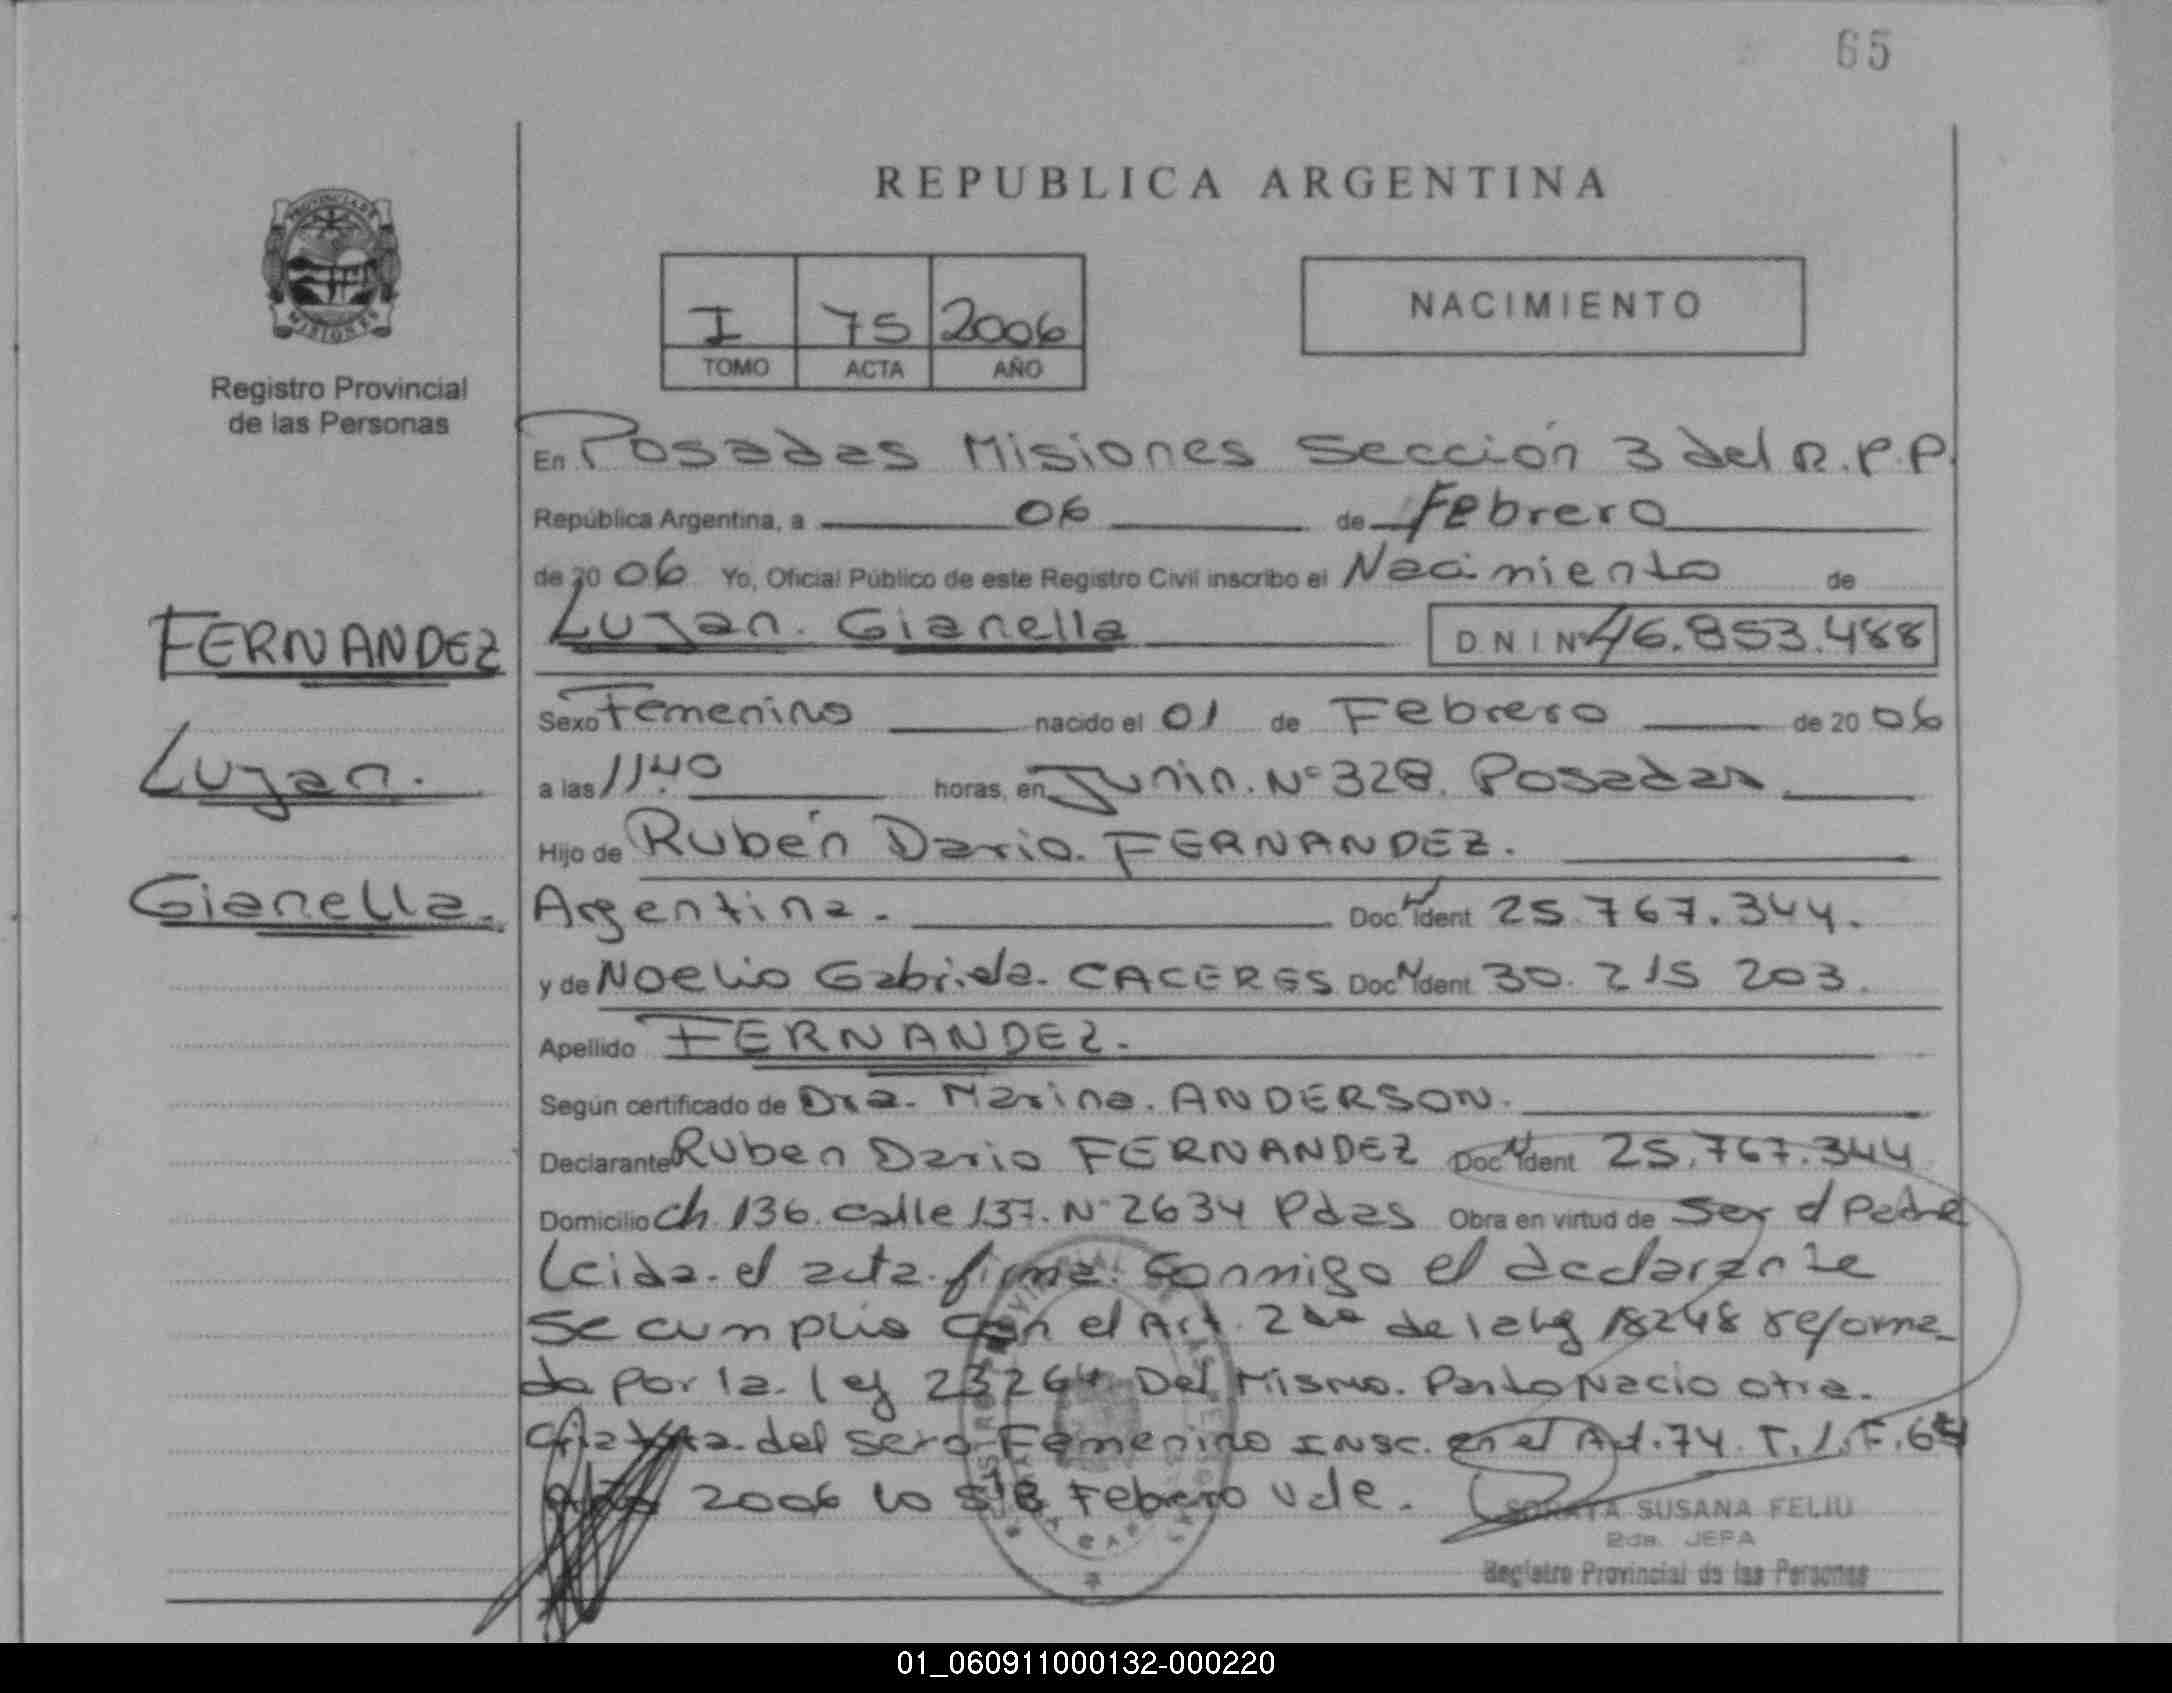 65
REPUBLICA ARGENTINA
PROVINCIA DE
MISIONES
Registro Provincial
de las Personas
I 75 2006
TOMO ACTA AÑO
NACIMIENTO
En Posadas Misiones Sección 3 del R.P.P.
República Argentina, a 06 de Febrero
de 20 06 Yo, Oficial Público de este Registro Civil inscribo el Nacimiento de
FERNANDEZ
Lujan. Gianella DNI Nº 46.853.488
Sexo Femenino nacido el 01 de Febrero de 20 06
Lujan.
a las 11.40 horas, en Junin. Nº 328. Posadas
Hijo de Rubén Dario. FERNANDEZ.
Gianella.
Argentina. Doc. Ident 25.767.344.
y de Noelia Gabriela. CACERES Doc. Ident 30.215 203.
Apellido FERNANDEZ.
Según certificado de Dra. Marina. ANDERSON.
Declarante Ruben Dario FERNANDEZ Doc. Ident 25.767.344
Domicilio Ch. 136. calle 137. Nº 2634 Pdas Obra en virtud de Ser el Padre
Leida. el acta. firma. Conmigo el declarante
Se cumplio con el Art. 2do de la ley 18248 reforma_
do por la. ley 23264 Del Mismo. Parto Nacio otra.
del sexo Femenino Insc. en el Act. 74. T. 1. F. 64
2006 lo 518 Febrero Vale.
SORAYA SUSANA FELIU
2da. JEFA
Registro Provincial de las Personas
01_060911000132-000220